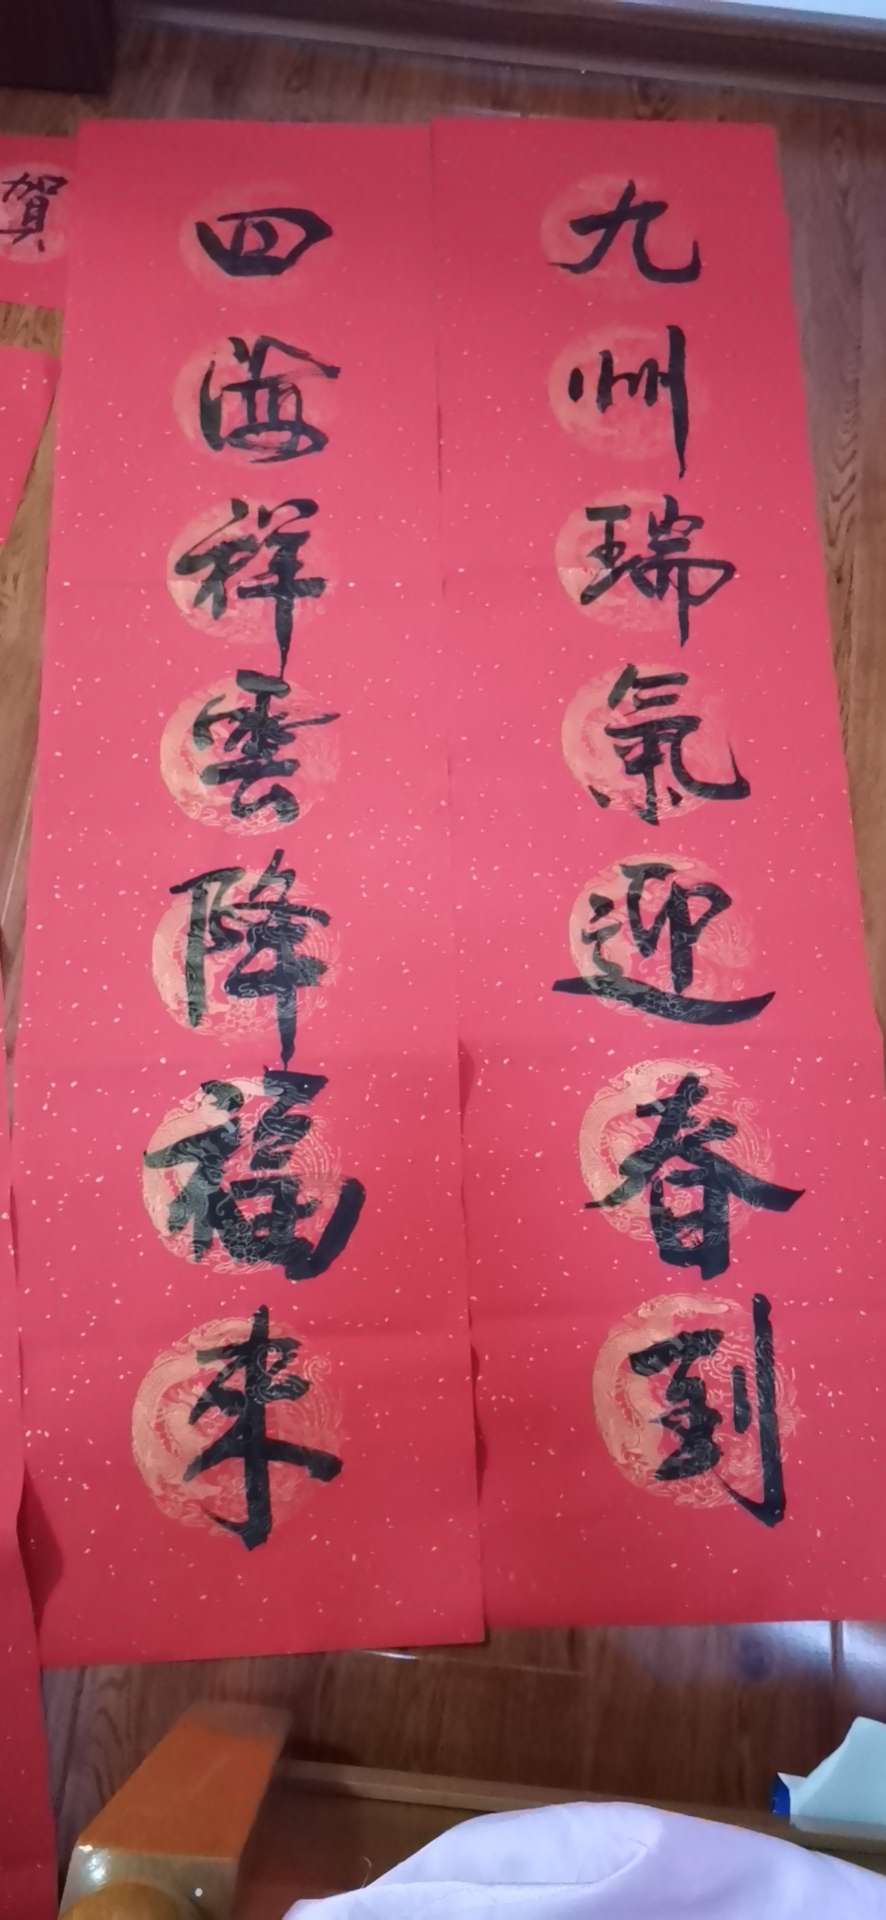 九州瑞氣迎春到
四海祥雲降福來
賀